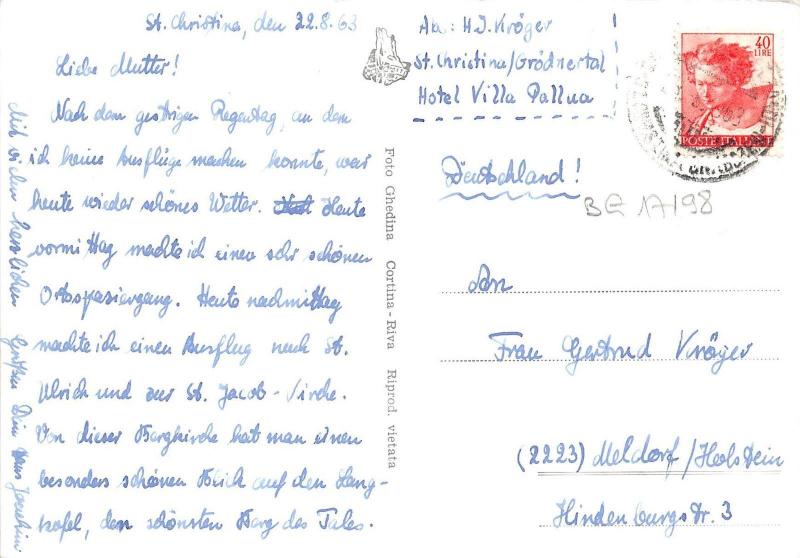 St. Christina, den 22.8.63
Liebe Mutter!
Nach dem gestrigen Regentag, an dem
ich keine Ausflüge machen konnte, war
heute wieder schönes Wetter. Heute
vormittag machte ich einen sehr schönen
Ortsspaziergang. Heute nachmittag
machte ich einen Ausflug nach St.
Ulrich und zur St. Jacob-Kirche.
Von dieser Bergkirche hat man einen
besonders schönen Blick auf den Lang-
kofel, den schönsten Berg des Tales.
Mit vielen herzlichen Grüßen Dein Hans Joachim
Foto Ghedina Cortina - Riva Riprod. vietata
Abs.: H.J. Kröger
St. Christina/Grödnertal
Hotel Villa Pallua
40
LIRE
POSTE ITALIANE
Deutschland!
BE 17/98
An
Frau Gertrud Kröger
(2223) Meldorf/Holstein
Hindenburgstr. 3